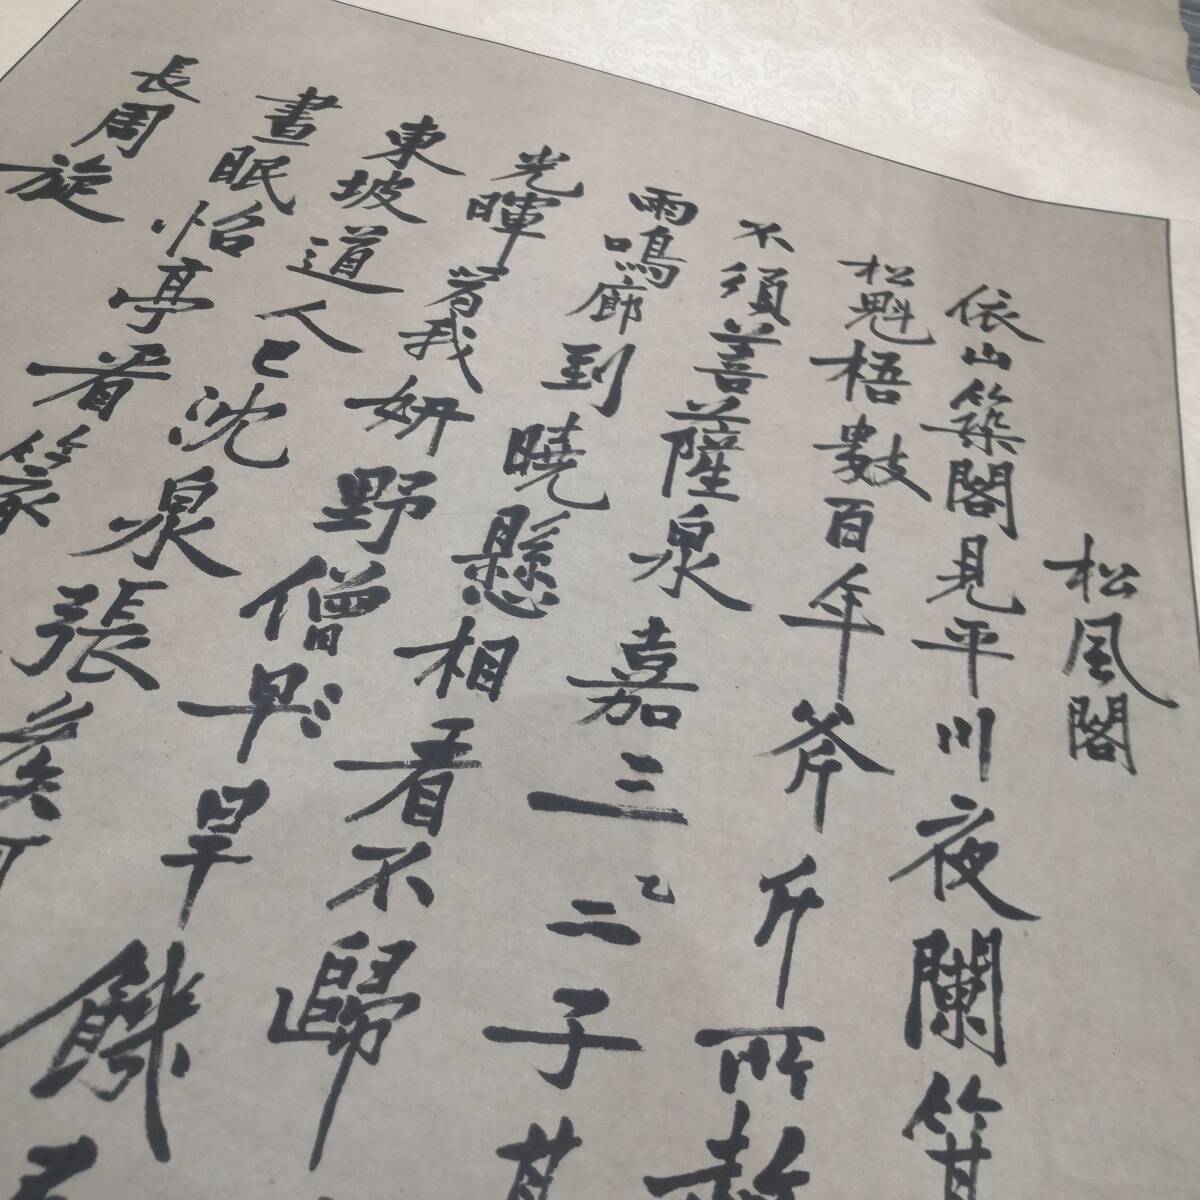 松風閣
依山築閣見平川夜闌箕
松魁梧數百年斧斤所赦
不須菩薩泉嘉三乙二子甚
雨鳴廊到曉懸相看不歸
光暉着我妍野僧旱旱饑
東坡道人已沈泉張侯何
晝眠怡亭看篆
長周旋